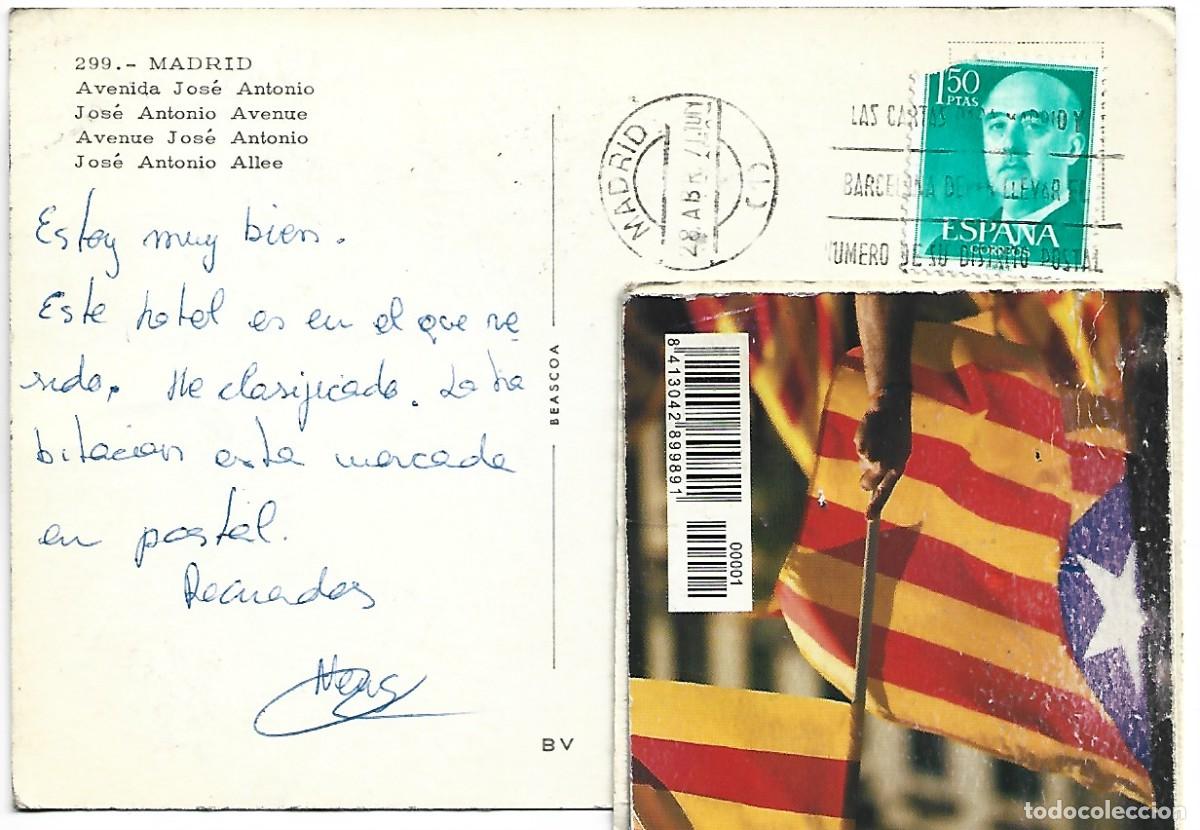 299.- MADRID
Avenida José Antonio
José Antonio Avenue
Avenue José Antonio
José Antonio Allee
Estoy muy bien.
Este hotel es en el que re
sido. He clasificado. La ha
bitacion esta marcada
en postal.
Recuerdos
BEASCOA
BV
MADRID
28.ABR.
LAS CARTAS PARA MADRID Y
BARCELONA DEBEN LLEVAR EL
NUMERO DE SU DISTRITO POSTAL
1,50
PTAS
ESPAÑA
CORREOS
8 413042 899891
00001
todocoleccion